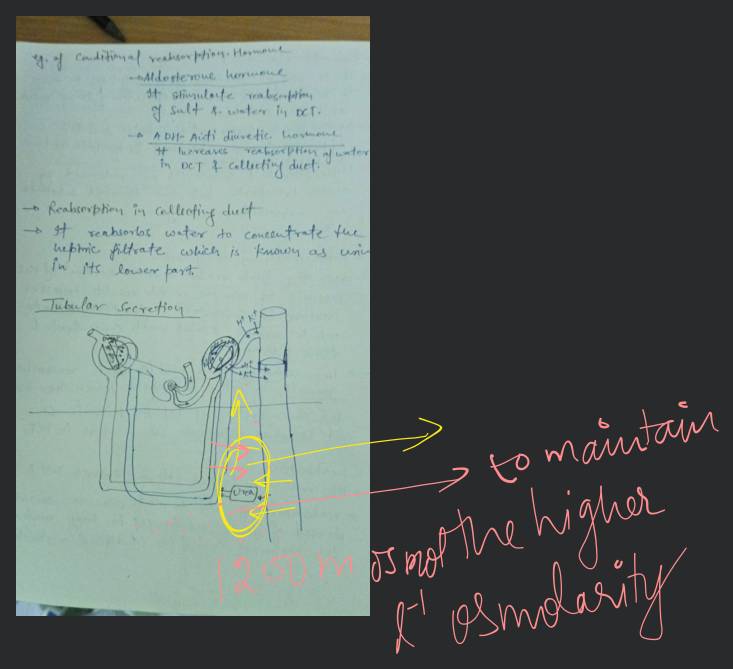 eg. of Conditional reabsorption. Hormone
→ Aldosterone hormone
It stimulate reabsorption
of salt & water in DCT.
→ ADH- Anti diuretic hormone
It Increases reabsorption of water
in DCT & Collecting duct.
→ Reabsorption in collecting duct
→ It reabsorbs water to concentrate the
nephric filtrate which is known as urin
in its lower part.
Tubular secretion
H+ K+
H+
K+
Urea
to maintain
the higher
osmolarity
1200 m osmol l-1